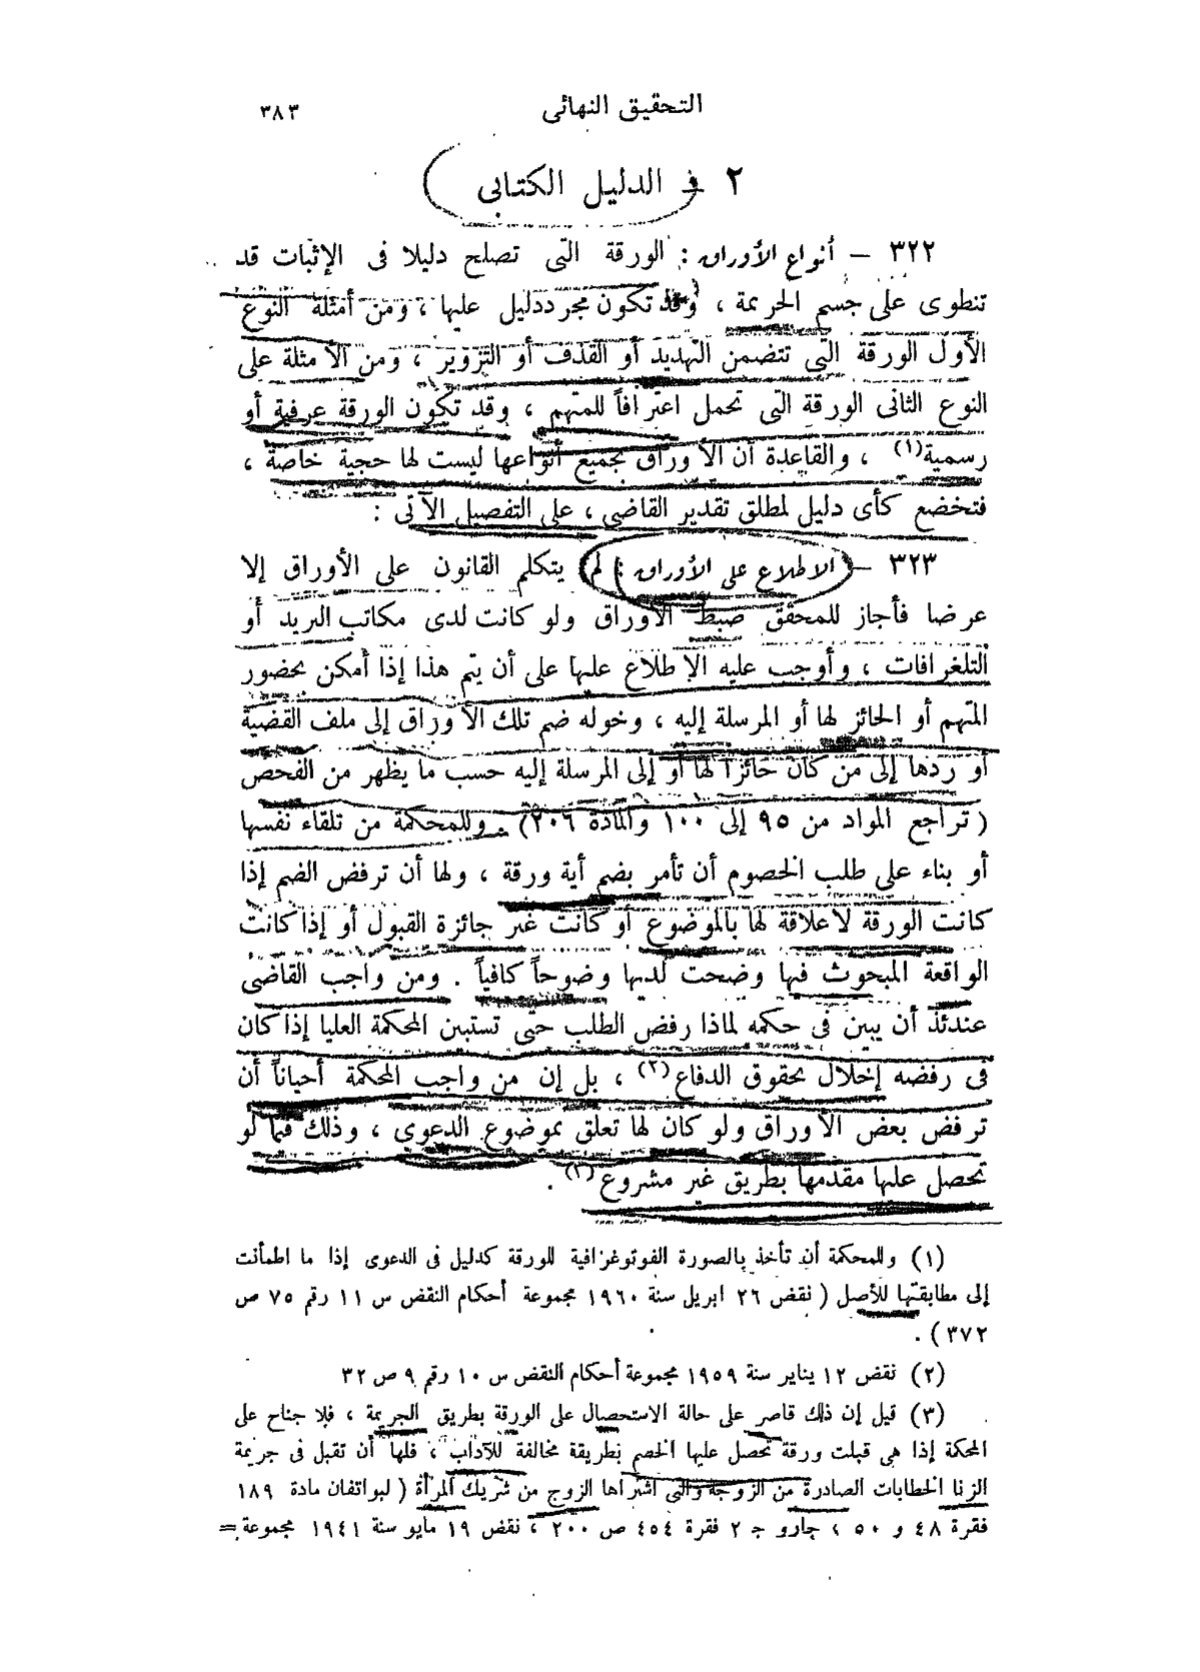 التحقيق النهائى ٣٨٣
٢ فى الدليل الكتابى
٣٢٢ — أنواع الأوراق : الورقة التى تصلح دليلا فى الإثبات قد
تنطوى على جسم الجريمة ، وقد تكون مجرد دليل عليها ، ومن أمثلة النوع
الأول الورقة التى تتضمن التهديد أو القذف أو التزوير ، ومن الأمثلة على
النوع الثانى الورقة التى تحمل اعترافاً للمتهم ، وقد تكون الورقة عرفية أو
رسمية(١) ، والقاعدة أن الأوراق بجميع أنواعها ليست لها حجية خاصة ،
فتخضع كأى دليل لمطلق تقدير القاضى ، على التفصيل الآتى :
٣٢٣ — الاطلاع على الأوراق : لم يتكلم القانون على الأوراق إلا
عرضا فأجاز للمحقق ضبط الأوراق ولو كانت لدى مكاتب البريد أو
التلغرافات ، وأوجب عليه الإطلاع عليها على أن يتم هذا إذا أمكن بحضور
المتهم أو الحائز لها أو المرسلة إليه ، وخوله ضم تلك الأوراق إلى ملف القضية
أو ردها إلى من كان حائزاً لها أو إلى المرسلة إليه حسب ما يظهر من الفحص
( تراجع المواد من ٩٥ إلى ١٠٠ والمادة ٢٠٦) . وللمحكمة من تلقاء نفسها
أو بناء على طلب الخصوم أن تأمر بضم أية ورقة ، ولها أن ترفض الضم إذا
كانت الورقة لا علاقة لها بالموضوع أو كانت غير جائزة القبول أو إذا كانت
الواقعة المبحوث فيها وضحت لديها وضوحاً كافياً . ومن واجب القاضى
عندئذ أن يبين فى حكمه لماذا رفض الطلب حتى تستبين المحكمة العليا إذا كان
فى رفضه إخلال بحقوق الدفاع(٢) ، بل إن من واجب المحكمة أحياناً أن
ترفض بعض الأوراق ولو كان لها تعلق بموضوع الدعوى ، وذلك فيما لو
تحصل عليها مقدمها بطريق غير مشروع(٣) .
(١) وللمحكمة أن تأخذ بالصورة الفوتوغرافية للورقة كدليل فى الدعوى إذا ما اطمأنت
إلى مطابقتها للأصل ( نقض ٢٦ ابريل سنة ١٩٦٠ مجموعة أحكام النقض س ١١ رقم ٧٥ ص
٣٧٢ ) .
(٢) نقض ١٢ يناير سنة ١٩٥٩ مجموعة أحكام النقض س ١٠ رقم ٩ ص ٣٢
(٣) قيل إن ذلك قاصر على حالة الاستحصال على الورقة بطريق الجريمة ، فلا جناح على
المحكمة إذا هى قبلت ورقة تحصل عليها الخصم بطريقة مخالفة للآداب ، فلها أن تقبل فى جريمة
الزنا الخطابات الصادرة من الزوجة والتى اشتراها الزوج من شريك المرأة ( لبواتفان مادة ١٨٩
فقرة ٤٨ و ٥٠ ، جارو ج ٢ فقرة ٤٥٤ ص ٢٠٠ ، نقض ١٩ مايو سنة ١٩٤١ مجموعة =